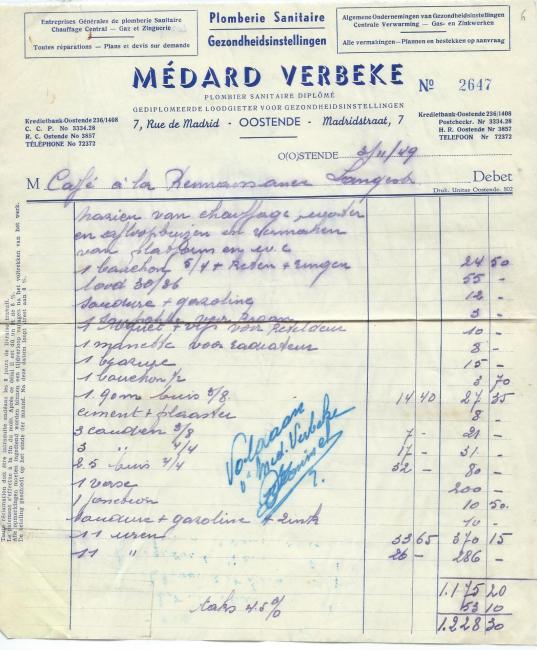 6
Entreprises Générales de plomberie Sanitaire
Chauffage Central — Gaz et Zinguerie
Toutes réparations — Plans et devis sur demande
Plomberie Sanitaire
Gezondheidsinstellingen
Algemene Ondernemingen van Gezondheidsinstellingen
Centrale Verwarming — Gas- en Zinkwerken
Alle vermakingen — Plannen en bestekken op aanvraag
MÉDARD VERBEKE
Nº 2647
PLOMBIER SANITAIRE DIPLÔMÉ
GEDIPLOMEERDE LOODGIETER VOOR GEZONDHEIDSINSTELLINGEN
Kredietbank-Oostende 236/1408
C. C. P. No 3334.28
R. C. Ostende No 3857
TÉLÉPHONE No 72372
7, Rue de Madrid - OOSTENDE - Madridstraat, 7
Kredietbank-Oostende 236/1408
Postcheckr. Nr 3334.28
H. R. Oostende Nr 3857
TELEFOON Nr 72372
O(O)STENDE 3/11/49
M Café à la Rennaissance Langestr Debet
Druk. Unitas Oostende. 502
nazien van chauffage,
en afloopbuizen en vermaken
van en w.c
1 bouchon 5/4 + + ringen 24 50
lood 30/36 55 -
soudure + gazoline 12 -
1 voor kraan 3 -
1 + vijs voor 10 -
1 manette voor radiateur 8 -
15 -
1 bouchon 1/2 3 70
1.90m buis 3/8 14 40 27 35
ciment + plaaster 8 -
3 couden 3/8 7 - 21 -
3 " 4/4 17 - 31 -
2.5 buis 4/4 32 - 80 -
1 200 -
1 jonction 10 50
soudure + gazoline + zink 10 -
11 uren 33 65 370 15
11 " 26 - 286 -
Voldaan
Med. Verbeke
1.175 20
taks 4.5% 53 10
1.228 30